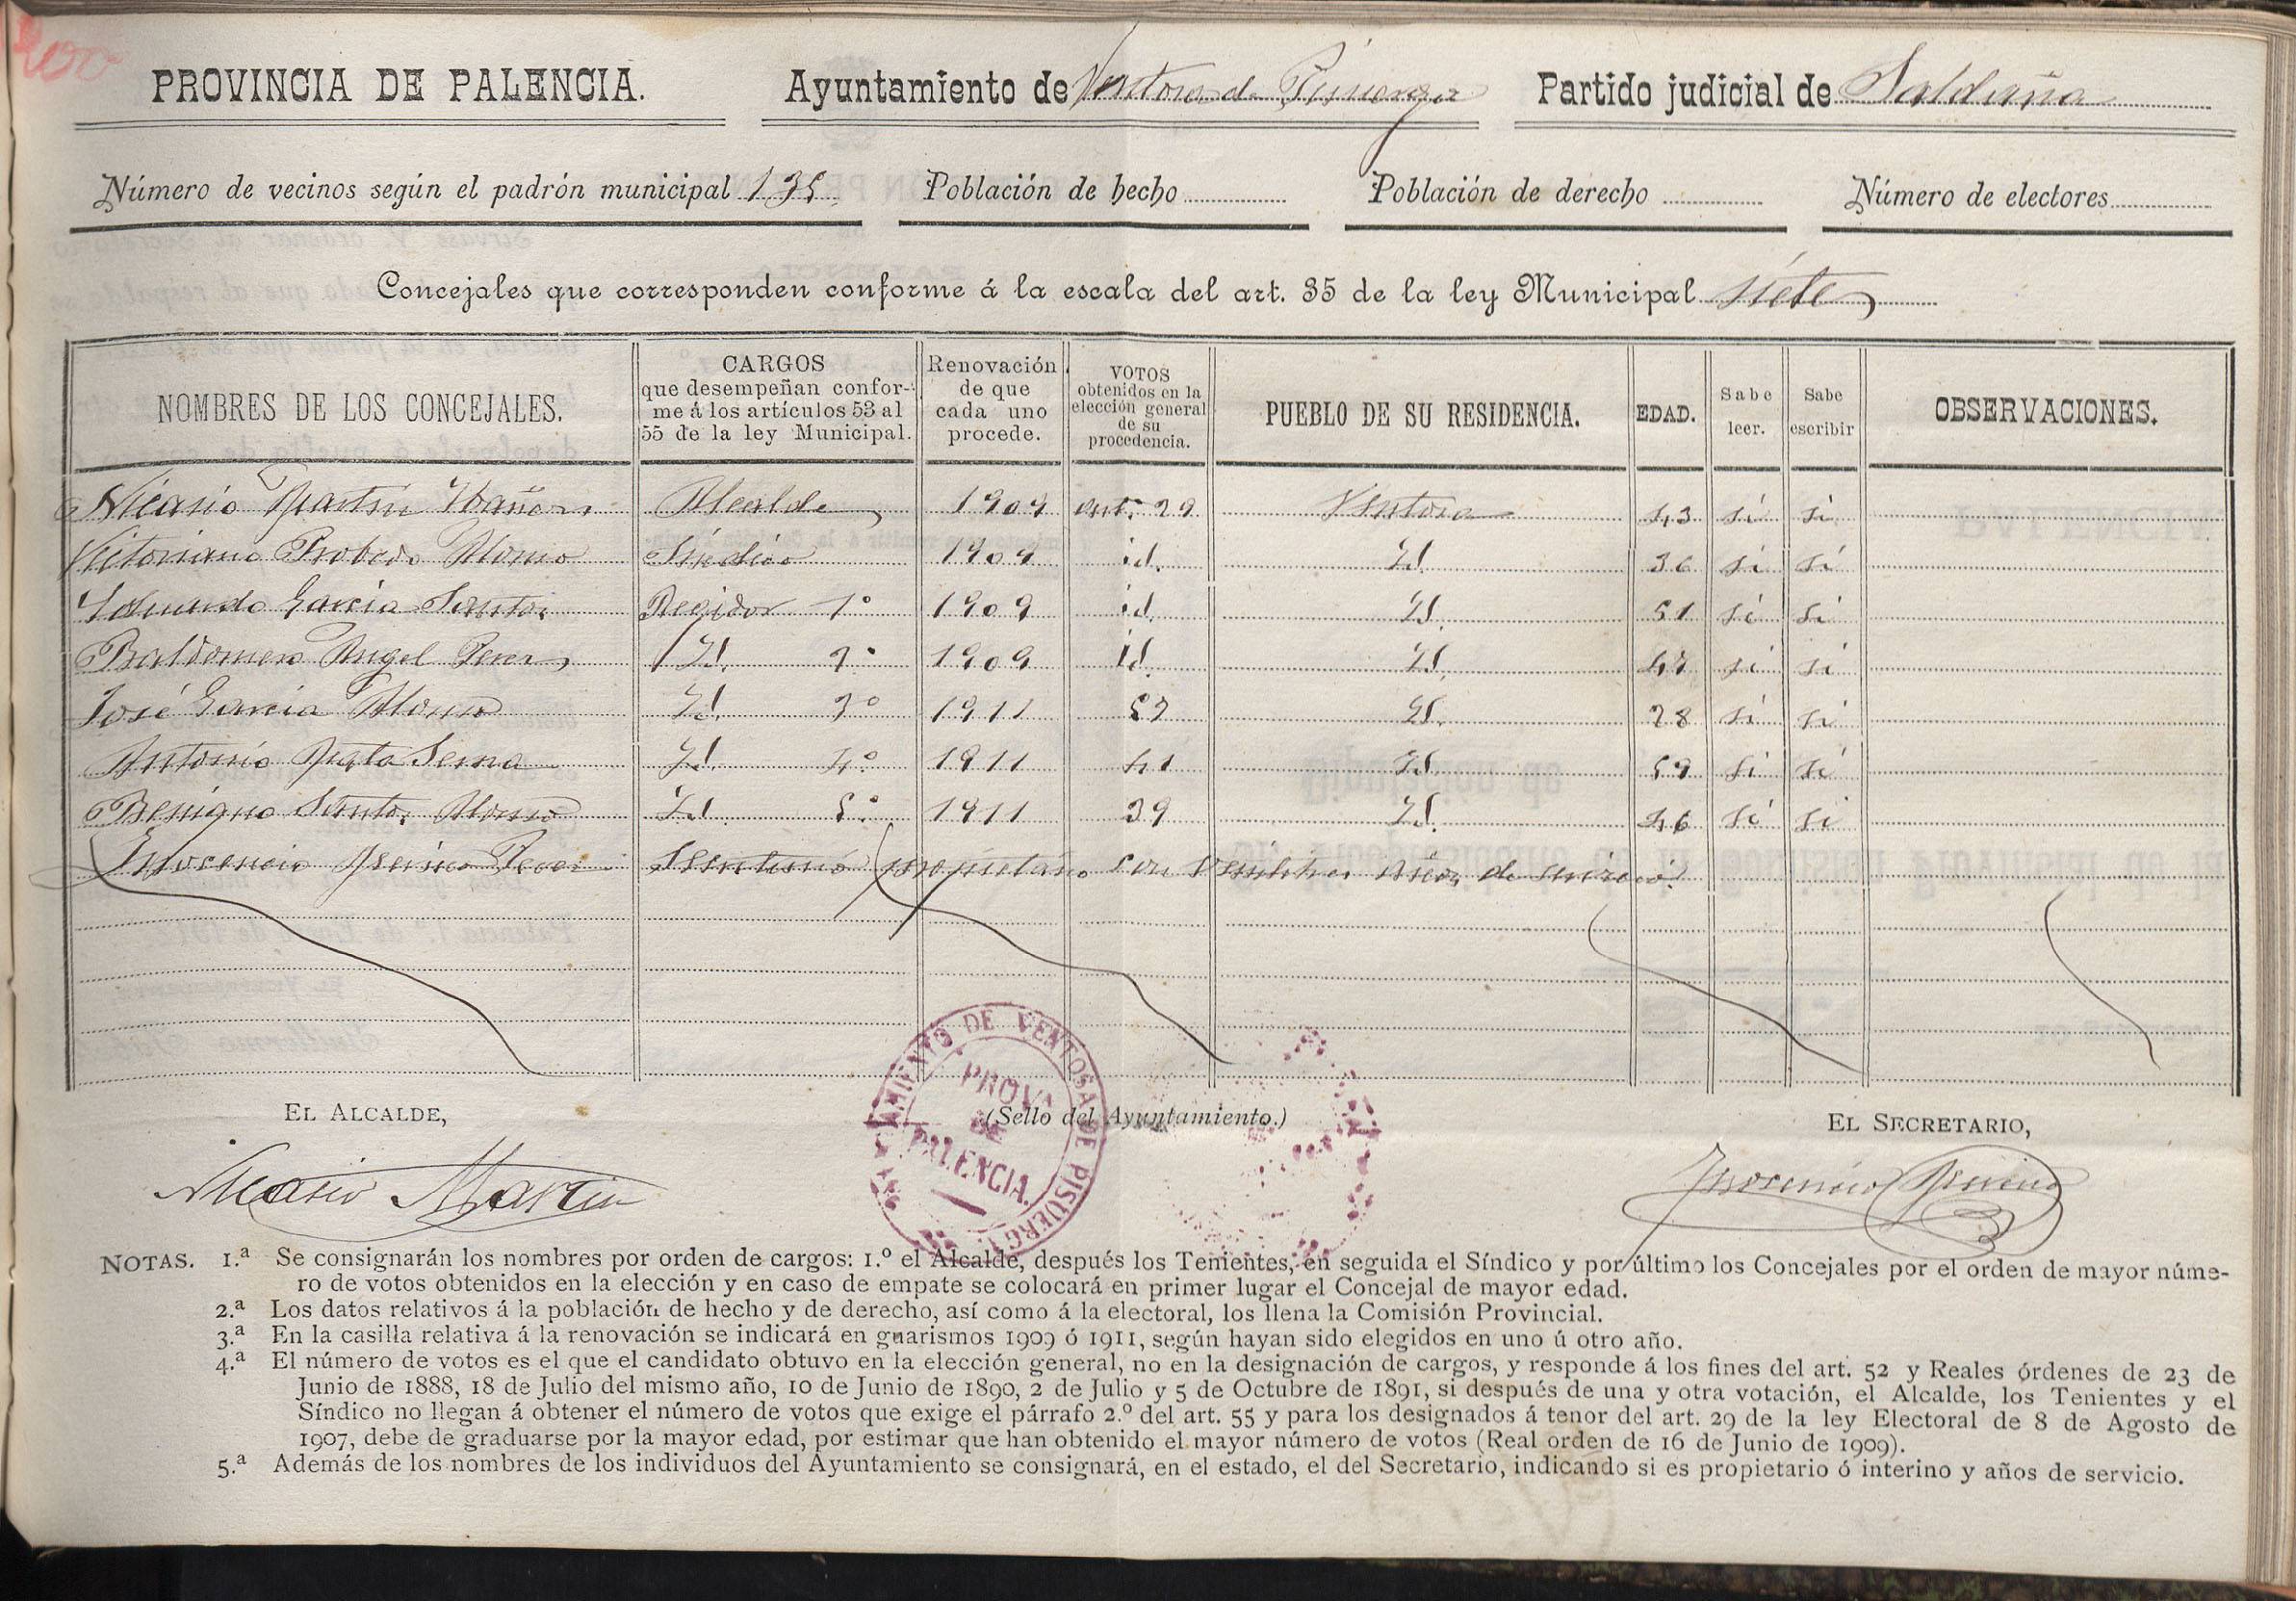 PROVINCIA DE PALENCIA. Ayuntamiento de Ventosa de Pisuerga Partido judicial de Saldaña
Número de vecinos según el padrón municipal 135 Población de hecho Población de derecho Número de electores
Concejales que corresponden conforme á la escala del art. 35 de la ley Municipal siete
NOMBRES DE LOS CONCEJALES.
CARGOS
que desempeñan confor-
me á los artículos 53 al
55 de la ley Municipal.
Renovación
de que
cada uno
procede.
VOTOS
obtenidos en la
elección general
de su
procedencia.
PUEBLO DE SU RESIDENCIA.
EDAD.
Sabe
leer.
Sabe
escribir
OBSERVACIONES.
Nicasio Martin Ibañez Alcalde 1909 art. 29 Ventosa 43 si si
Victoriano Alonso Sindico 1909 id. Id. 36 si si
Garcia Santos Regidor 1º 1909 id. Id. 51 si si
Baldomero Angel Perez Id. 2º 1909 id. Id. 47 si si
José Garcia Alonso Id. 3º 1911 Id. 28 si si
Antonio Serna Id. 4º 1911 41 Id. 59 si si
Benigno Santos Alonso Id. 5º 1911 39 Id. 46 si si
Inocencio propietario con años de servicio.
EL ALCALDE,
(Sello del Ayuntamiento.)
EL SECRETARIO,
AYUNTAMIENTO DE VENTOSA DE PISUERGA
PROVª
DE
PALENCIA.
Nicasio Martin
Inocencio
NOTAS. 1.ª Se consignarán los nombres por orden de cargos: 1.º el Alcalde, después los Tenientes, en seguida el Síndico y por último los Concejales por el orden de mayor núme-
ro de votos obtenidos en la elección y en caso de empate se colocará en primer lugar el Concejal de mayor edad.
2.ª Los datos relativos á la población de hecho y de derecho, así como á la electoral, los llena la Comisión Provincial.
3.ª En la casilla relativa á la renovación se indicará en guarismos 1909 ó 1911, según hayan sido elegidos en uno ú otro año.
4.ª El número de votos es el que el candidato obtuvo en la elección general, no en la designación de cargos, y responde á los fines del art. 52 y Reales órdenes de 23 de
Junio de 1888, 18 de Julio del mismo año, 10 de Junio de 1890, 2 de Julio y 5 de Octubre de 1891, si después de una y otra votación, el Alcalde, los Tenientes y el
Síndico no llegan á obtener el número de votos que exige el párrafo 2.º del art. 55 y para los designados á tenor del art. 29 de la ley Electoral de 8 de Agosto de
1907, debe de graduarse por la mayor edad, por estimar que han obtenido el mayor número de votos (Real orden de 16 de Junio de 1909).
5.ª Además de los nombres de los individuos del Ayuntamiento se consignará, en el estado, el del Secretario, indicando si es propietario ó interino y años de servicio.